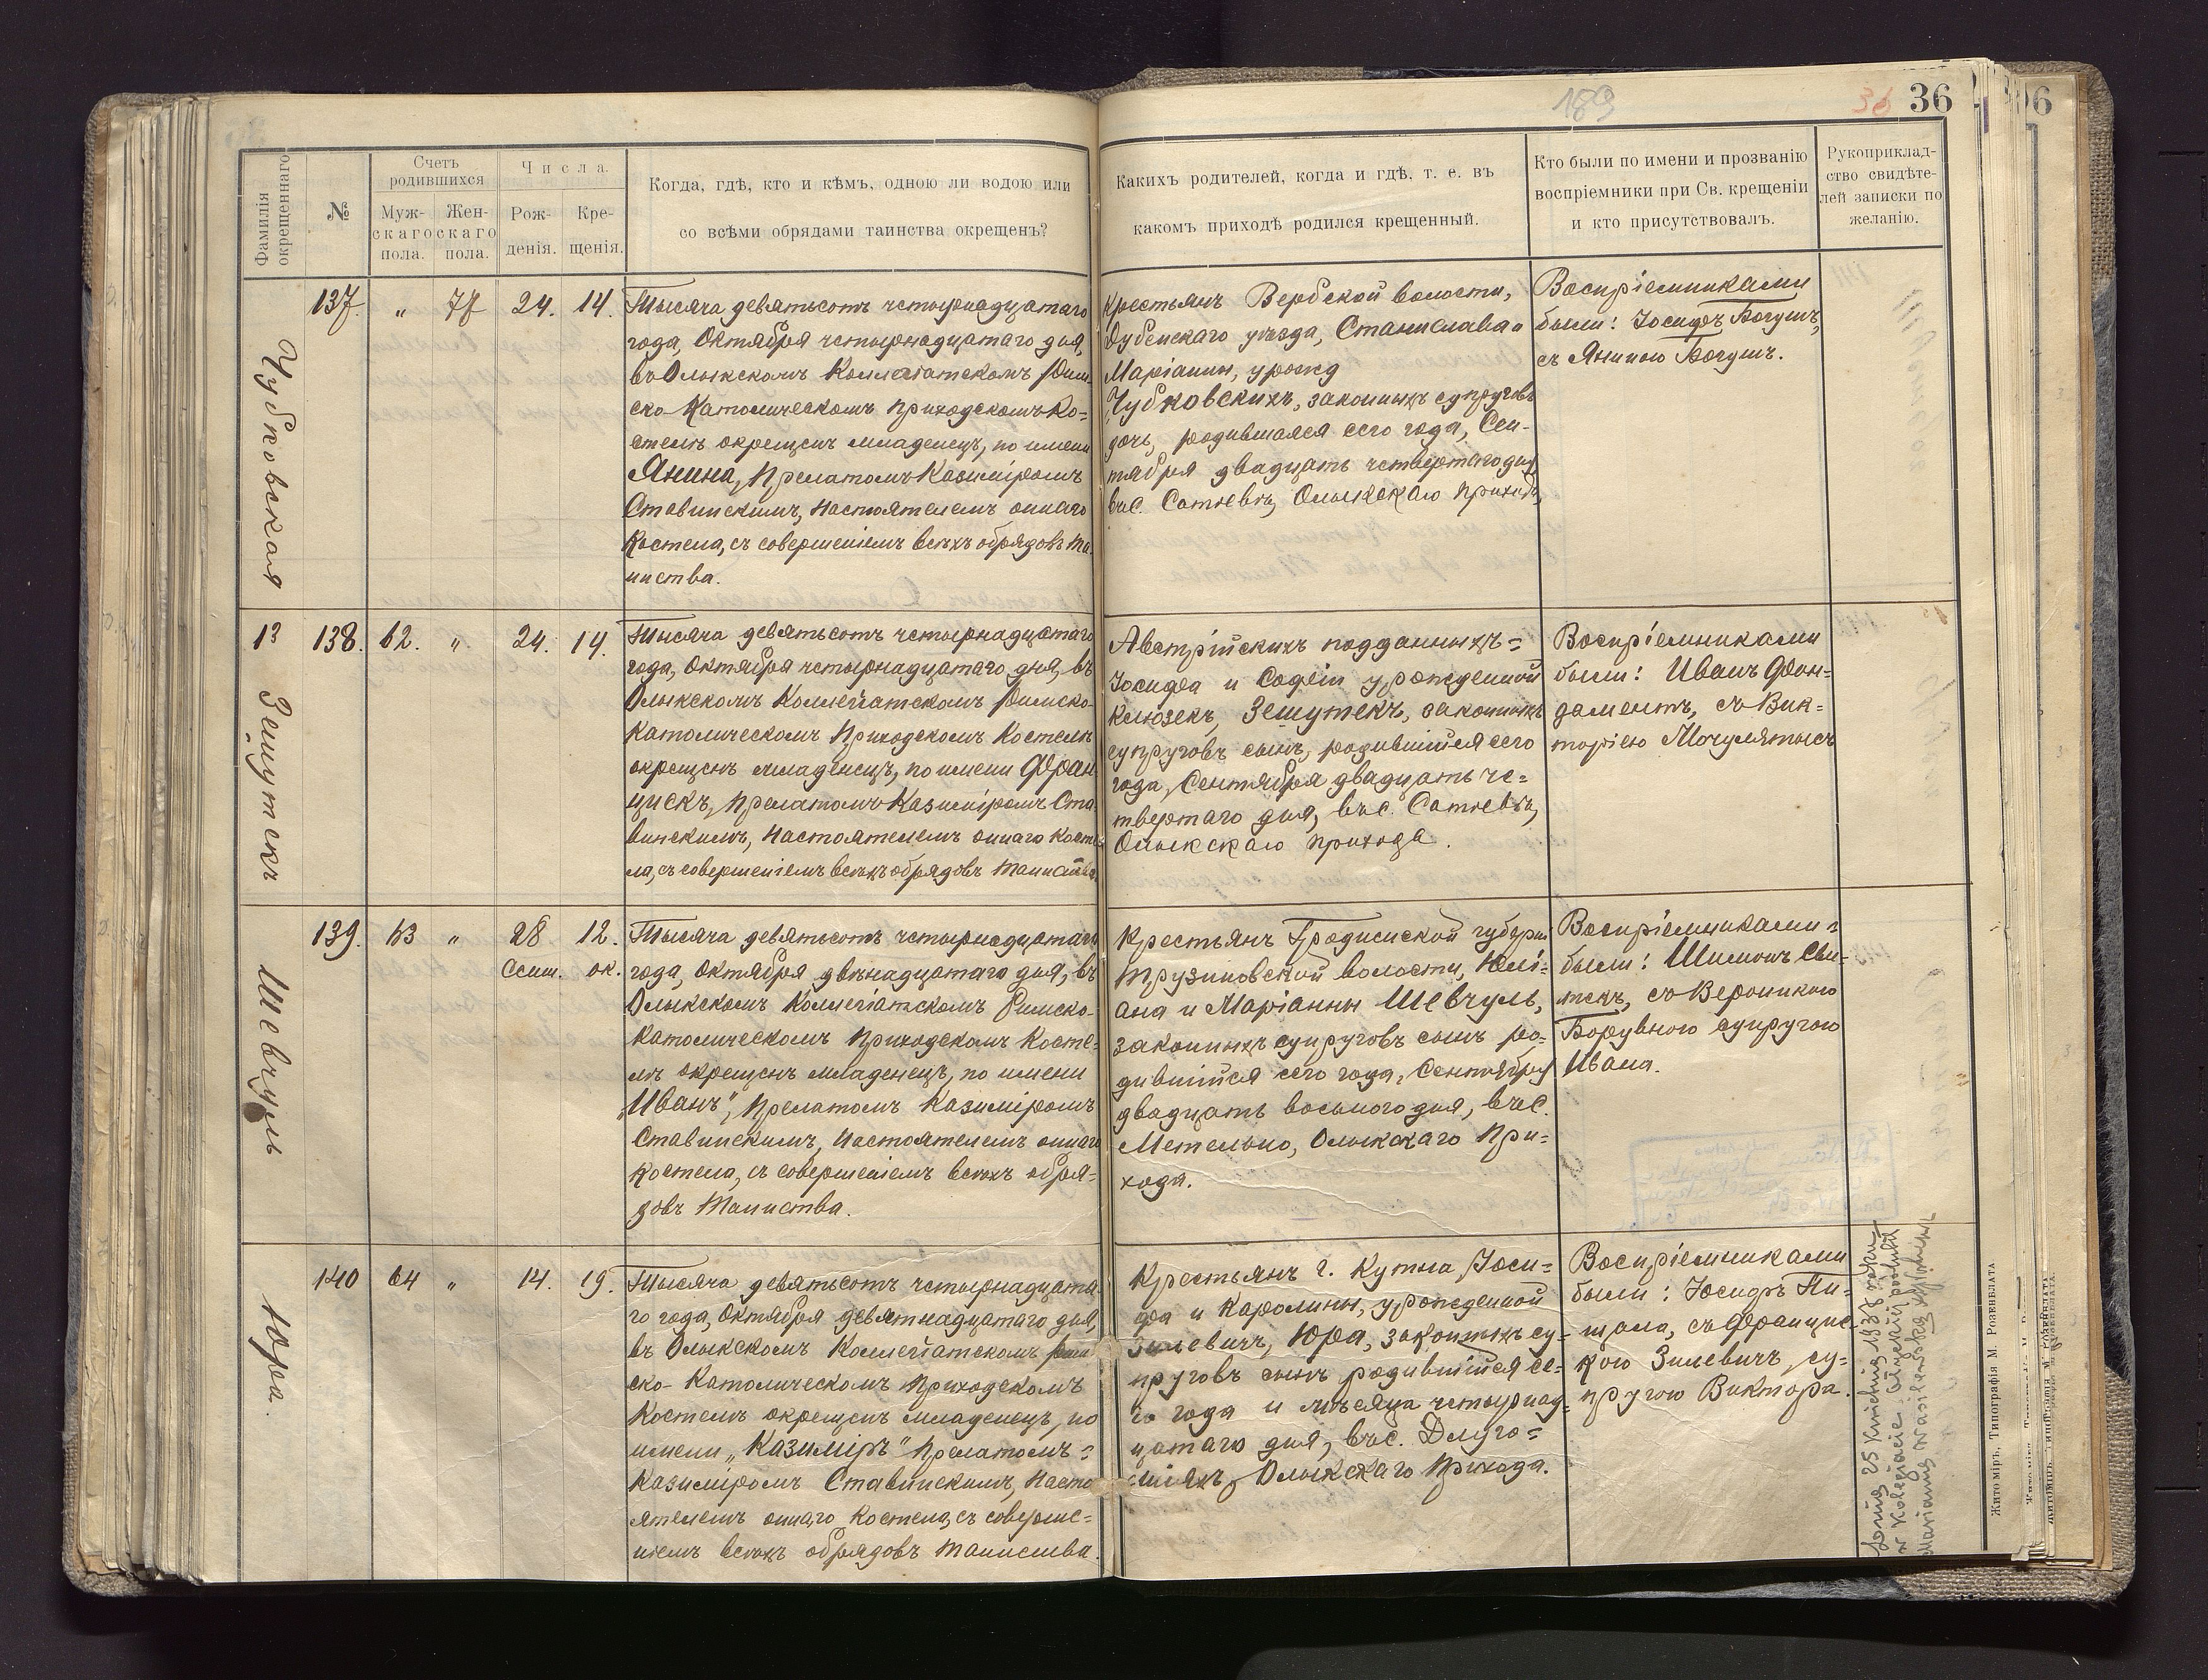 189
36
36
Фамилія окрещеннаго
№
Счетъ родившихся
Муж-
скаго
пола.
Жен-
скаго
пола.
Числа.
Рож-
денія.
Кре-
щенія.
Когда, гдѣ, кто и кѣмъ, одною ли водою или
со всѣми обрядами таинства окрещенъ?
Какихъ родителей, когда и гдѣ, т. е. въ
какомъ приходѣ родился крещенный.
Кто были по имени и прозванію
воспріемники при Св. крещеніи
и кто присутствовалъ.
Рукоприклад-
ство свидѣте-
лей записки по
желанію.
Чубковская
137. „ 77 24. 14.
Тысяча девятьсотъ четырнадцатаго
года, Октября четырнадцатаго дня,
въ Олыкскомъ Коллегіатскомъ Рим-
ско-Католическомъ Приходскомъ Ко=
стелѣ окрещенъ младенецъ, по имени
Янина, Прелатомъ Казиміромъ
Ставинскимъ, Настоятелемъ оннаго
Костела, съ совершеніемъ всѣхъ обрядовъ Та-
инства.
Крестьянъ Вербской волости,
Дубенскаго уѣзда, Станислава и
Маріанны, урожд
Чубковскихъ, законныхъ супруговъ
дочь, родившаяся сего года, Сен-
тября двадцать четвертаго дня,
въ с. Сатіевѣ, Олыкскаго Прихода,
Воспріемниками
были: Іосифъ Богушъ,
съ Яниною Богушъ.
13 Зешутекъ
138. 62. „ 24. 14.
Тысяча девятьсотъ четырнадцатаго
года, Октября четырнадцатаго дня, въ
Олыкскомъ Коллегіатскомъ Римско-
Католическомъ Приходскомъ Костелѣ
окрещенъ младенецъ, по имени Фран-
цискъ, Прелатомъ Казиміромъ Ста-
винскимъ, Настоятелемъ оннаго Косте-
ла, съ совершеніемъ всѣхъ обрядовъ Таинства.
Австрійскихъ подданныхъ=
Іосифа и Софіи урожденной
Клюзекъ, Зешутекъ, законныхъ
супруговъ сынъ, родившійся сего
года, Сентября двадцать че=
твертаго дня, въ с. Сатіевѣ,
Олыкскаго Прихода.
Воспріемниками
были: Иванъ Фон-
даментъ, съ Вик=
торіею
Шевчуль
139. 63 „ 28 12.
Сент. ок.
Тысяча девятьсотъ четырнадцатаго
года, Октября двѣнадцатаго дня, въ
Олыкскомъ Коллегіатскомъ Римско-
Католическомъ Приходскомъ Косте-
лѣ окрещенъ младенецъ, по имени
„Иванъ“, Прелатомъ Казиміромъ
Ставинскимъ, Настоятелемъ оннаго
Костела, съ совершеніемъ всѣхъ обря-
довъ Таинства.
Крестьянъ Гродненской губерн.
волости, Юлі-
ана и Маріанны Шевчуль,
законныхъ супруговъ сынъ ро-
дившійся сего года, Сентября
двадцать восьмого дня, въ с.
Метельно, Олыкскаго При=
хода.
Воспріемниками
были: Шимонъ Сви-
текъ, съ Вероникою
супругою
Ивана.
Юра.
140 64 „ 14. 19.
Тысяча девятьсотъ четырнадцата-
го года, Октября девятнадцатаго дня,
въ Олыкскомъ Коллегіатскомъ Рим
ско-Католическомъ Приходскомъ
Костелѣ окрещенъ младенецъ, по
имени „Казиміръ“ Прелатомъ=
Казиміромъ Ставинскимъ, Насто
ятелемъ оннаго Костела, съ соверше=
ніемъ всѣхъ обрядовъ Таинства.
Крестьянъ г. Кутна, Іоси=
фа и Каролины, урожденной
Зилевичъ, Юра, законныхъ су-
пруговъ сынъ родившійся се-
го года и мѣсяца четырнад-
цатаго дня, въ с. Длуго=
Олыкскаго Прихода.
Воспріемниками
были: Іосифъ Пи-
щала, съ Францис-
кою Зилевичъ, су-
пругою Виктора.
Dnia 25 kwietnia 1938 roku
w Kolegiacie Ołyckiej poślubił
Mariannę
Житоміръ, Типографія М. Розенблата